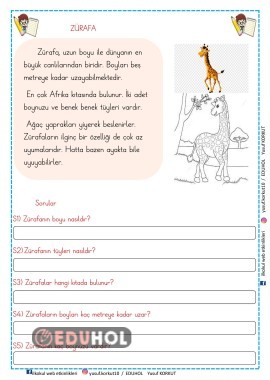 ZÜRAFA
Zürafa, uzun boyu ile dünyanın en
büyük canlılarından biridir. Boyları beş
metreye kadar uzayabilmektedir.
En çok Afrika kıtasında bulunur. İki adet
boynuzu ve benek benek tüyleri vardır.
Ağaç yaprakları yiyerek beslenirler.
Zürafaların ilginç bir özelliği de çok az
uyumalarıdır. Hatta bazen ayakta bile
uyuyabilirler.
Sorular
S1) Zürafanın boyu nasıldır?
S2) Zürafanın tüyleri nasıldır?
S3) Zürafalar hangi kıtada bulunur?
S4) Zürafaların boyları kaç metreye kadar uzar?
S5)
EDUHOL
ilkokul web etkinlikleri yusufkorkut10 / EDUHOL Yusuf KORKUT
ilkokul web etkinlikleri yusufkorkut10 / EDUHOL Yusuf KORKUT